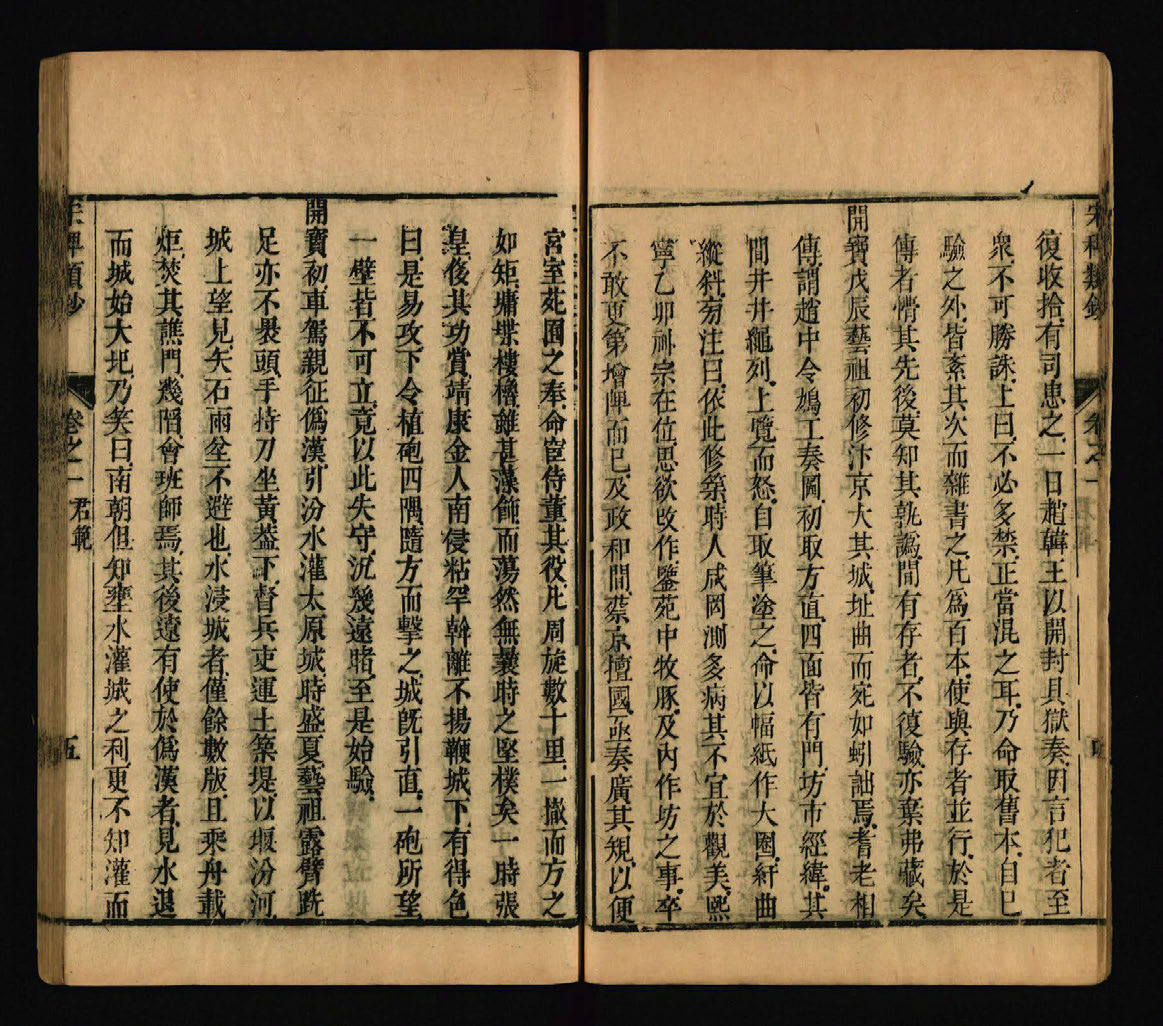 宋稗類鈔 卷之一 四
復收拾有司患之一日趙韓王以開封具獄奏因言犯者至
衆不可勝誅上曰不必多禁正當混之耳乃命取舊本自巳
驗之外皆紊其次而雜書之凡爲百本使與存者並行於是
傳者懵其先後莫知其孰譌間有存者不復驗亦棄弗藏矣
開寶戊辰藝祖初修汴京大其城址曲而宛如蚓詘焉耆老相
傳謂趙中令鳩工奏圖初取方直四面皆有門坊市經緯其
間井井繩列上覽而怒自取筆塗之命以幅紙作大圈紆曲
縱斜旁注曰依此修築時人咸罔測多病其不宜於觀美熙
寧乙卯神宗在位思欲改作鑒苑中牧豚及內作坊之事卒
不敢更第增陴而已及政和間蔡京擅國亟奏廣其規以便
宮室苑囿之奉命宦侍董其役凡周旋數十里一撤而方之
如矩墉堞樓櫓雖甚藻飾而蕩然無曩時之堅樸矣一時張
皇後其功賞靖康金人南侵粘罕斡離不揚鞭城下有得色
曰是易攻下令植砲四隅隨方而擊之城旣引直一砲所望
一壁皆不可立竟以此失守沉幾遠睹至是始驗
開寶初車駕親征僞漢引汾水灌太原城時盛夏藝祖露臂跣
足亦不裹頭手持刀坐黃蓋下督兵吏運土築堤以堰汾河
城上望見矢石雨坌不避也水浸城者僅餘數版且乘舟載
炬焚其譙門幾陷會班師焉其後遼有使於僞漢者見水退
而城始大圯乃笑曰南朝但知壅水灌城之利更不知灌而
宋稗類鈔 卷之一 君範 五